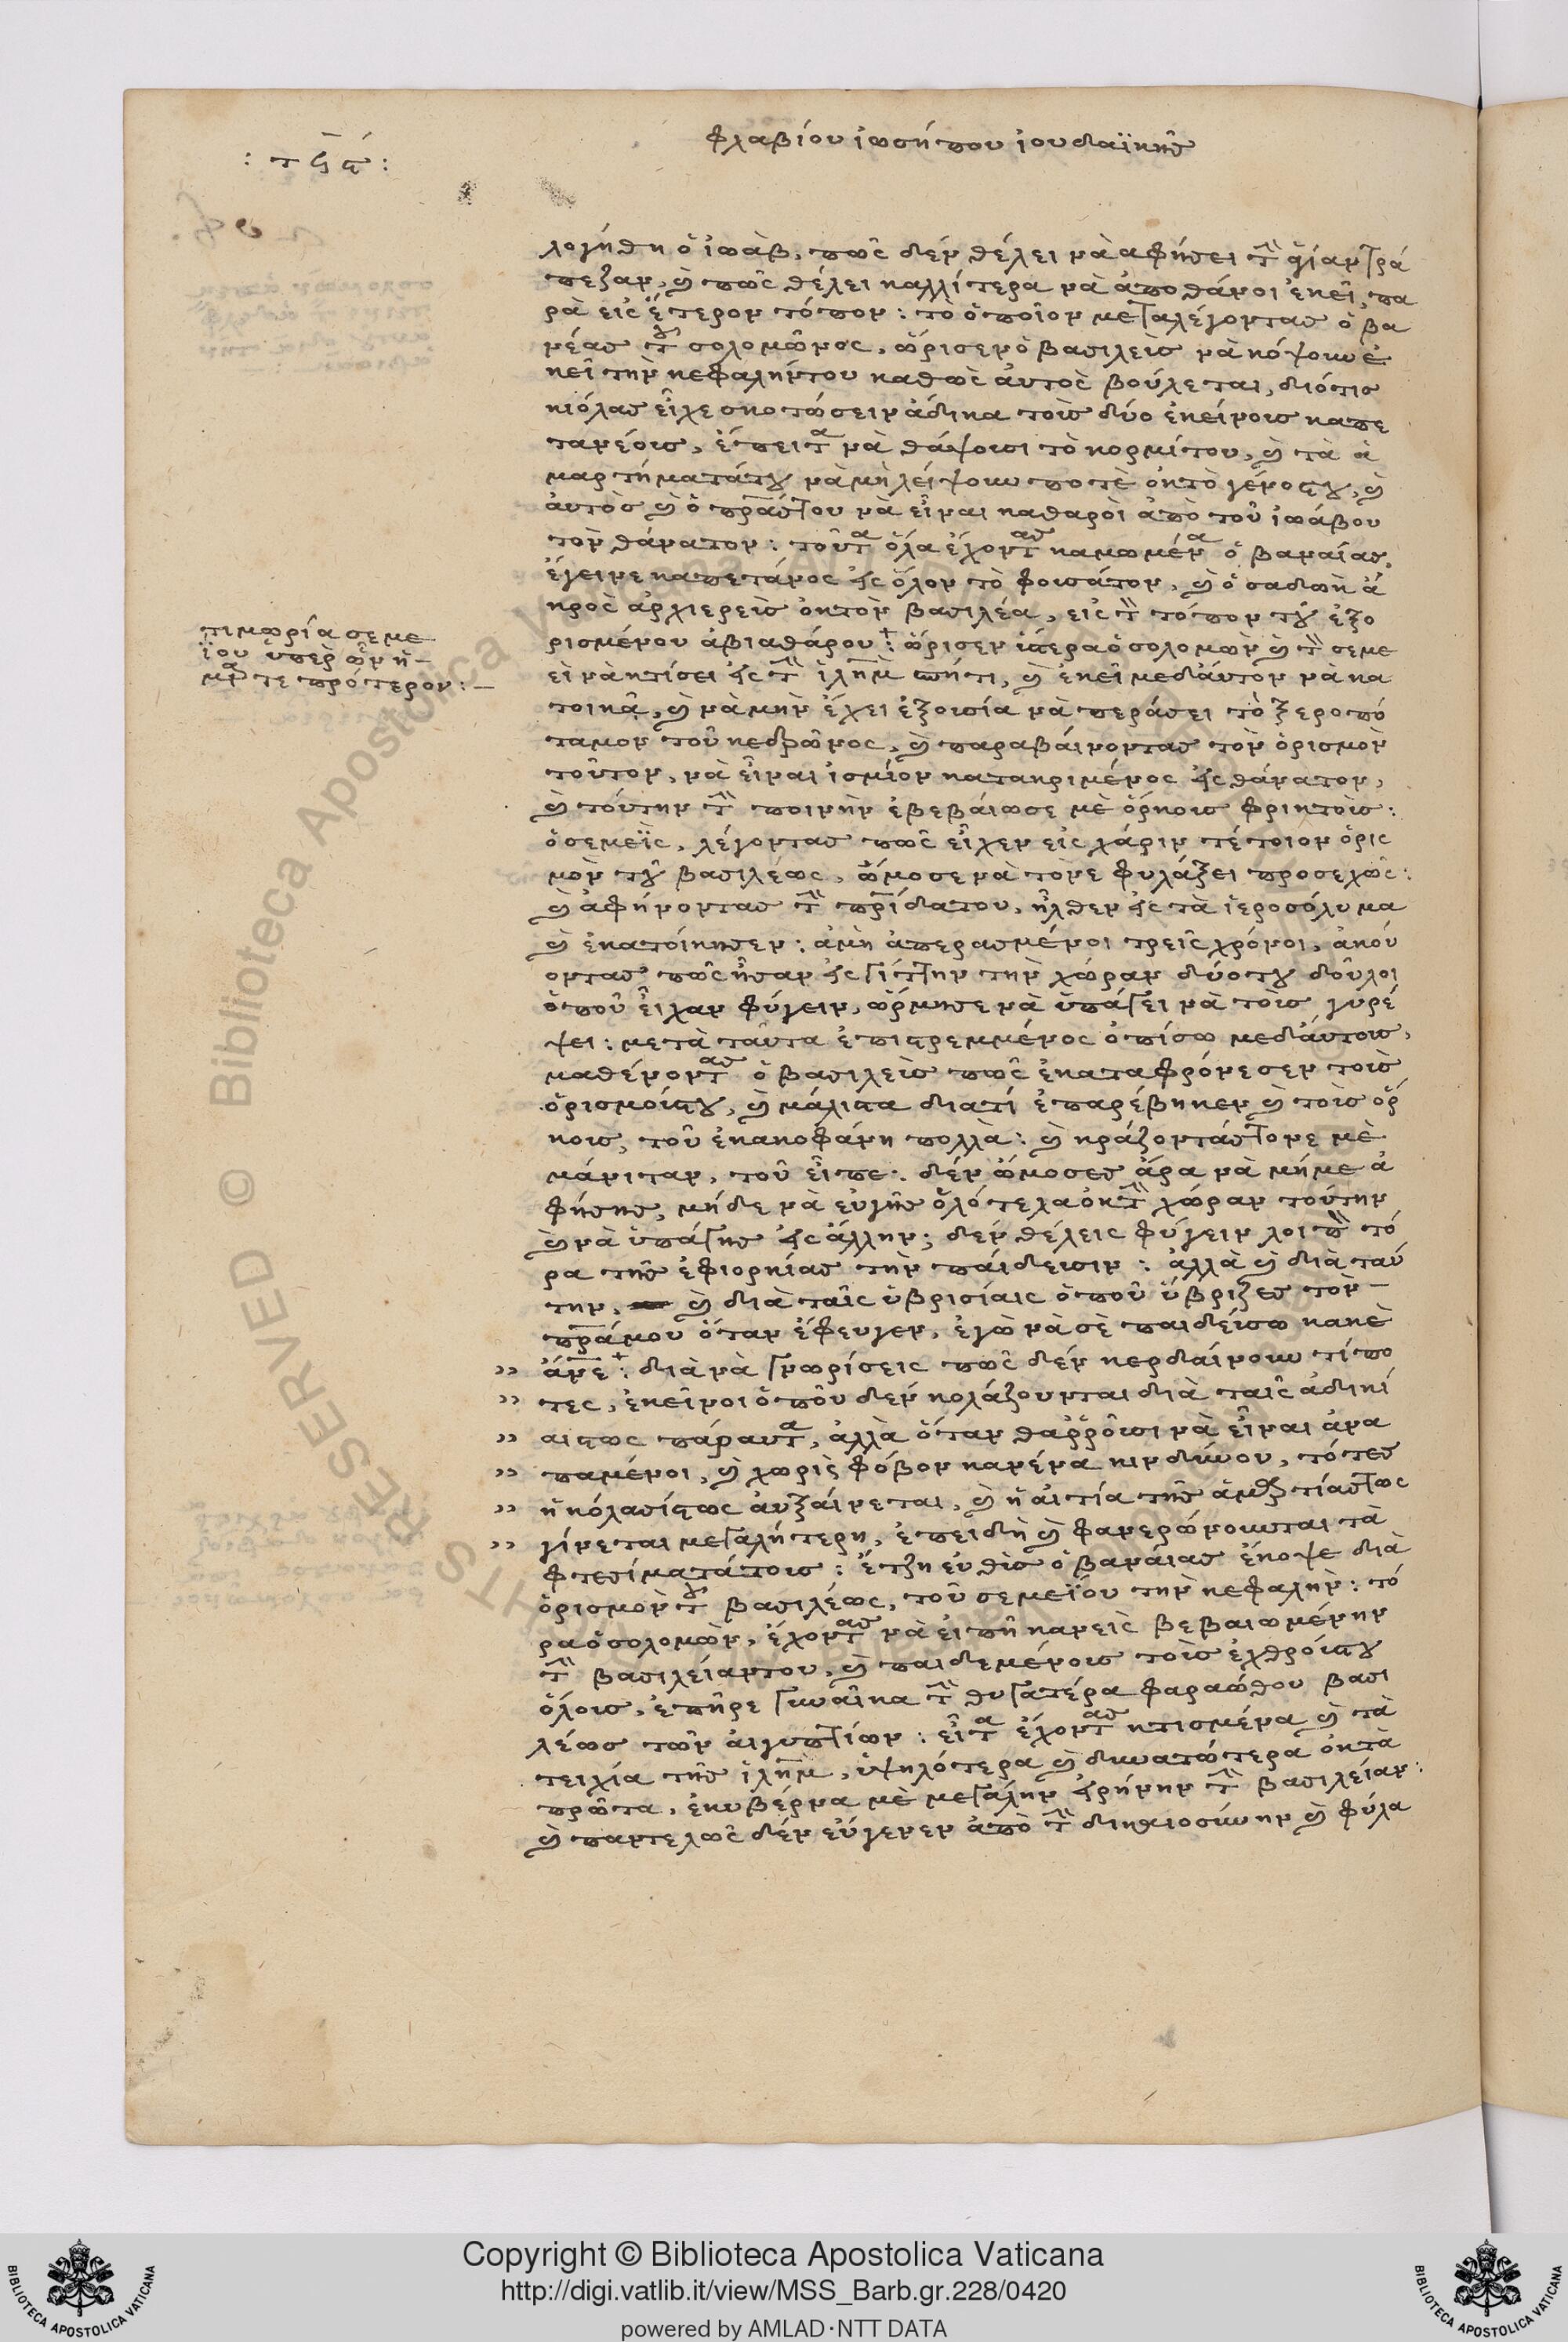 φλαβίου ἰωσήπου ἰουδαϊκῆς
: τϟϛ :
λογήθη ὁ ἰωὰβ, πῶς δὲν θέλει νὰ ἀφήσει τὴν ἁγίαν τρά
πεζαν, καὶ πῶς θέλει καλλίτερα νὰ ἀποθάνοι ἐκεῖ, πα
ρὰ εἰς ἕτερον τόπον: τὸ ὁποῖον μεταλέγοντας ὁ βα
νέας τοῦ σολομῶνος, ὥρισεν ὁ βασιλεὺς νὰ κόψουν ἐ
κεῖ τὴν κεφαλήντου καθὼς ἀυτὸς βούλεται, διότις
κιόλας εἶχε σκοτώσειν ἄδικα τοὺς δύο ἐκείνους καπε
τανέους, ἔπειτα νὰ θάψουσι τὸ κορμίτου, καὶ τὰ ἁ
μαρτήματάτου νὰ μὴ λείψουν ποτὲ ὀκτὸ γένοςτου, καὶ
ἀυτὸς καὶ ὁ πατέραςτου νὰ εἶναι καθαροὶ ἀπὸ τοῦ ἰωάβου
τὸν θάνατον: τοῦτα ὅλα ἔχοντας καμωμένα ὁ βαναίας,
ἔγεινε καπετάνος εἰς ὅλον τὸ φουσάτον, καὶ ὁ σαδὼκ ἄ
κρος ἀρχιερεὺς ὀκτὸν βασιλέα, εἰς τὸν τόπον τοῦ ἐξο
ρισμένου ἀβιαθάρου: ὥρισεν ὕστερα ὁ σολομὼν καὶ τὸν σεμε
εὶ νὰ κτίσει εἰς τὴν ἱλὴμ σπήτι, καὶ ἐκεῖ μεδάυτον νὰ κα
τοικᾶ, καὶ νὰ μὴν ἔχει ἐξουσία νὰ περάσει τὸ ξεροπό
ταμον τοῦ κεδρῶνος, καὶ παραβάινοντας τὸν ὁρισμὸν
τοῦτον, νὰ εἶναι ἰσμίον κατακριμένος εἰς θάνατον,
καὶ τούτην τὴν ποινὴν ἐβεβάιωσε μὲ ὅρκους φρικτοὺς:
ὁ σεμεῒς, λέγοντας πῶς εἶχεν εἰς χάριν τέτοιον ὁρις
μὸν τοῦ βασιλέως, ὤμοσε νὰ τόνε φυλάξει προσεχῶς:
καὶ ἀφήνοντας τὴν πατρίδατου, ἦλθεν εἰς τὰ ἱεροσόλυμα
καὶ ἐκατοίκησεν: ἀμὴ ἀπερασμένοι τρεῖς χρόνοι, ἀκού
οντας πῶς ἦσαν εἰς γίττην τὴν χώραν δύοτου δοῦλοι
ὁποῦ εἶχαν φύγειν, ὥρμησε νὰ ὑπάγει νὰ τοὺς γυρέ
ψει: μετὰ ταῦτα ἐπιστρεμμένος ὀπίσω μεδάυτους,
μαθένοντας ὁ βασιλεὺς πῶς ἐκαταφρόνεσεν τοὺς
ὁρισμούςτου, καὶ μάλιστα διατί ἐπαρέβηκεν καὶ τοὺς ὅρ
κους, τοῦ ἐκακοφάνη πολλὰ: καὶ κράζοντάςτονε μὲ
μάνιταν, τοῦ εἶπε: δὲν ὤμοσες ἄρα νὰ μήμε ἀ
φήσης, μήδε νὰ εὐγῆς ὁλότελα ὀκτὴν χώραν τούτην
καὶ νὰ ὑπάγης εἰς ἄλλην; δὲν θέλεις φύγειν λοιπὸν τό
ρα τῆς ἐφιορκίας τὴν πάιδευσιν: ἀλλὰ καὶ διὰ ταύ
την, καὶ διὰ ταῖς ὑβρισίαις ὁποῦ ὕβριζες τὸν
πατέραμου ὅταν ἔφευγεν, ἐγὼ νὰ σὲ παιδεύσω κακὲ
" ἄνθρωπε: διὰ νὰ γνωρίσεις πῶς δὲν κερδαίνουν τίπο
" τες, ἐκεῖνοι ὁποῦ δὲν κολάζουνται διὰ ταῖς ἀδικί
" αιςτως πάραυτα, ἀλλὰ ὅταν θαῤῥοῦσι νὰ εἶναι ἀνα
" παμένοι, καὶ χωρὶς φόβον κανένα κινδύνου, τότες
" ἡ κόλασίςτως ἀυξάινεται, καὶ ἡ ἀιτία τῆς ἁμαρτίαςτως
" γίνεται μεγαλήτερη, ἐπειδὴ καὶ φανερώνουνται τὰ
φτεσίματάτους: ἔτζη εὐθὺς ὁ βανάιας ἔκοψε διὰ
ὁρισμὸν τοῦ βασιλέως, τοῦ σεμεΐου τὴν κεφαλὴν: τό
ρα ὁ σολομὼν, ἔχοντας νὰ εἰπῆ κανεὶς βεβαιωμένην
τὴν βασιλείαντου, καὶ παιδεμένους τοὺς ἐχθρούςτου
ὅλους, ἐπῆρε γυναῖκα τὴν θυγατέρα φαραώθου βασι
λέως τῶν ἀιγυπτίων: εἶτα ἔχοντας κτισμένα καὶ τὰ
τειχία τῆς ἱλὴμ, ὑψηλότερα καὶ δυνατώτερα ὀκτὰ
πρῶτα, ἐκυβέρνα μὲ μεγάλην εἰρήνην τὴν βασιλείαν:
καὶ παντελῶς δὲν εὔγενεν ἀπὸ τὴν δικαιοσύνην καὶ φύλα
τιμωρία σεμε
ΐου ὑπὲρ ὧν ἥ-
μαρτε πρότερον: -
Copyright © Biblioteca Apostolica Vaticana
http://digi.vatlib.it/view/MSS_Barb.gr.228/0420
powered by AMLAD·NTT DATA
BIBLIOTECA APOSTOLICA VATICANA
BIBLIOTECA APOSTOLICA VATICANA